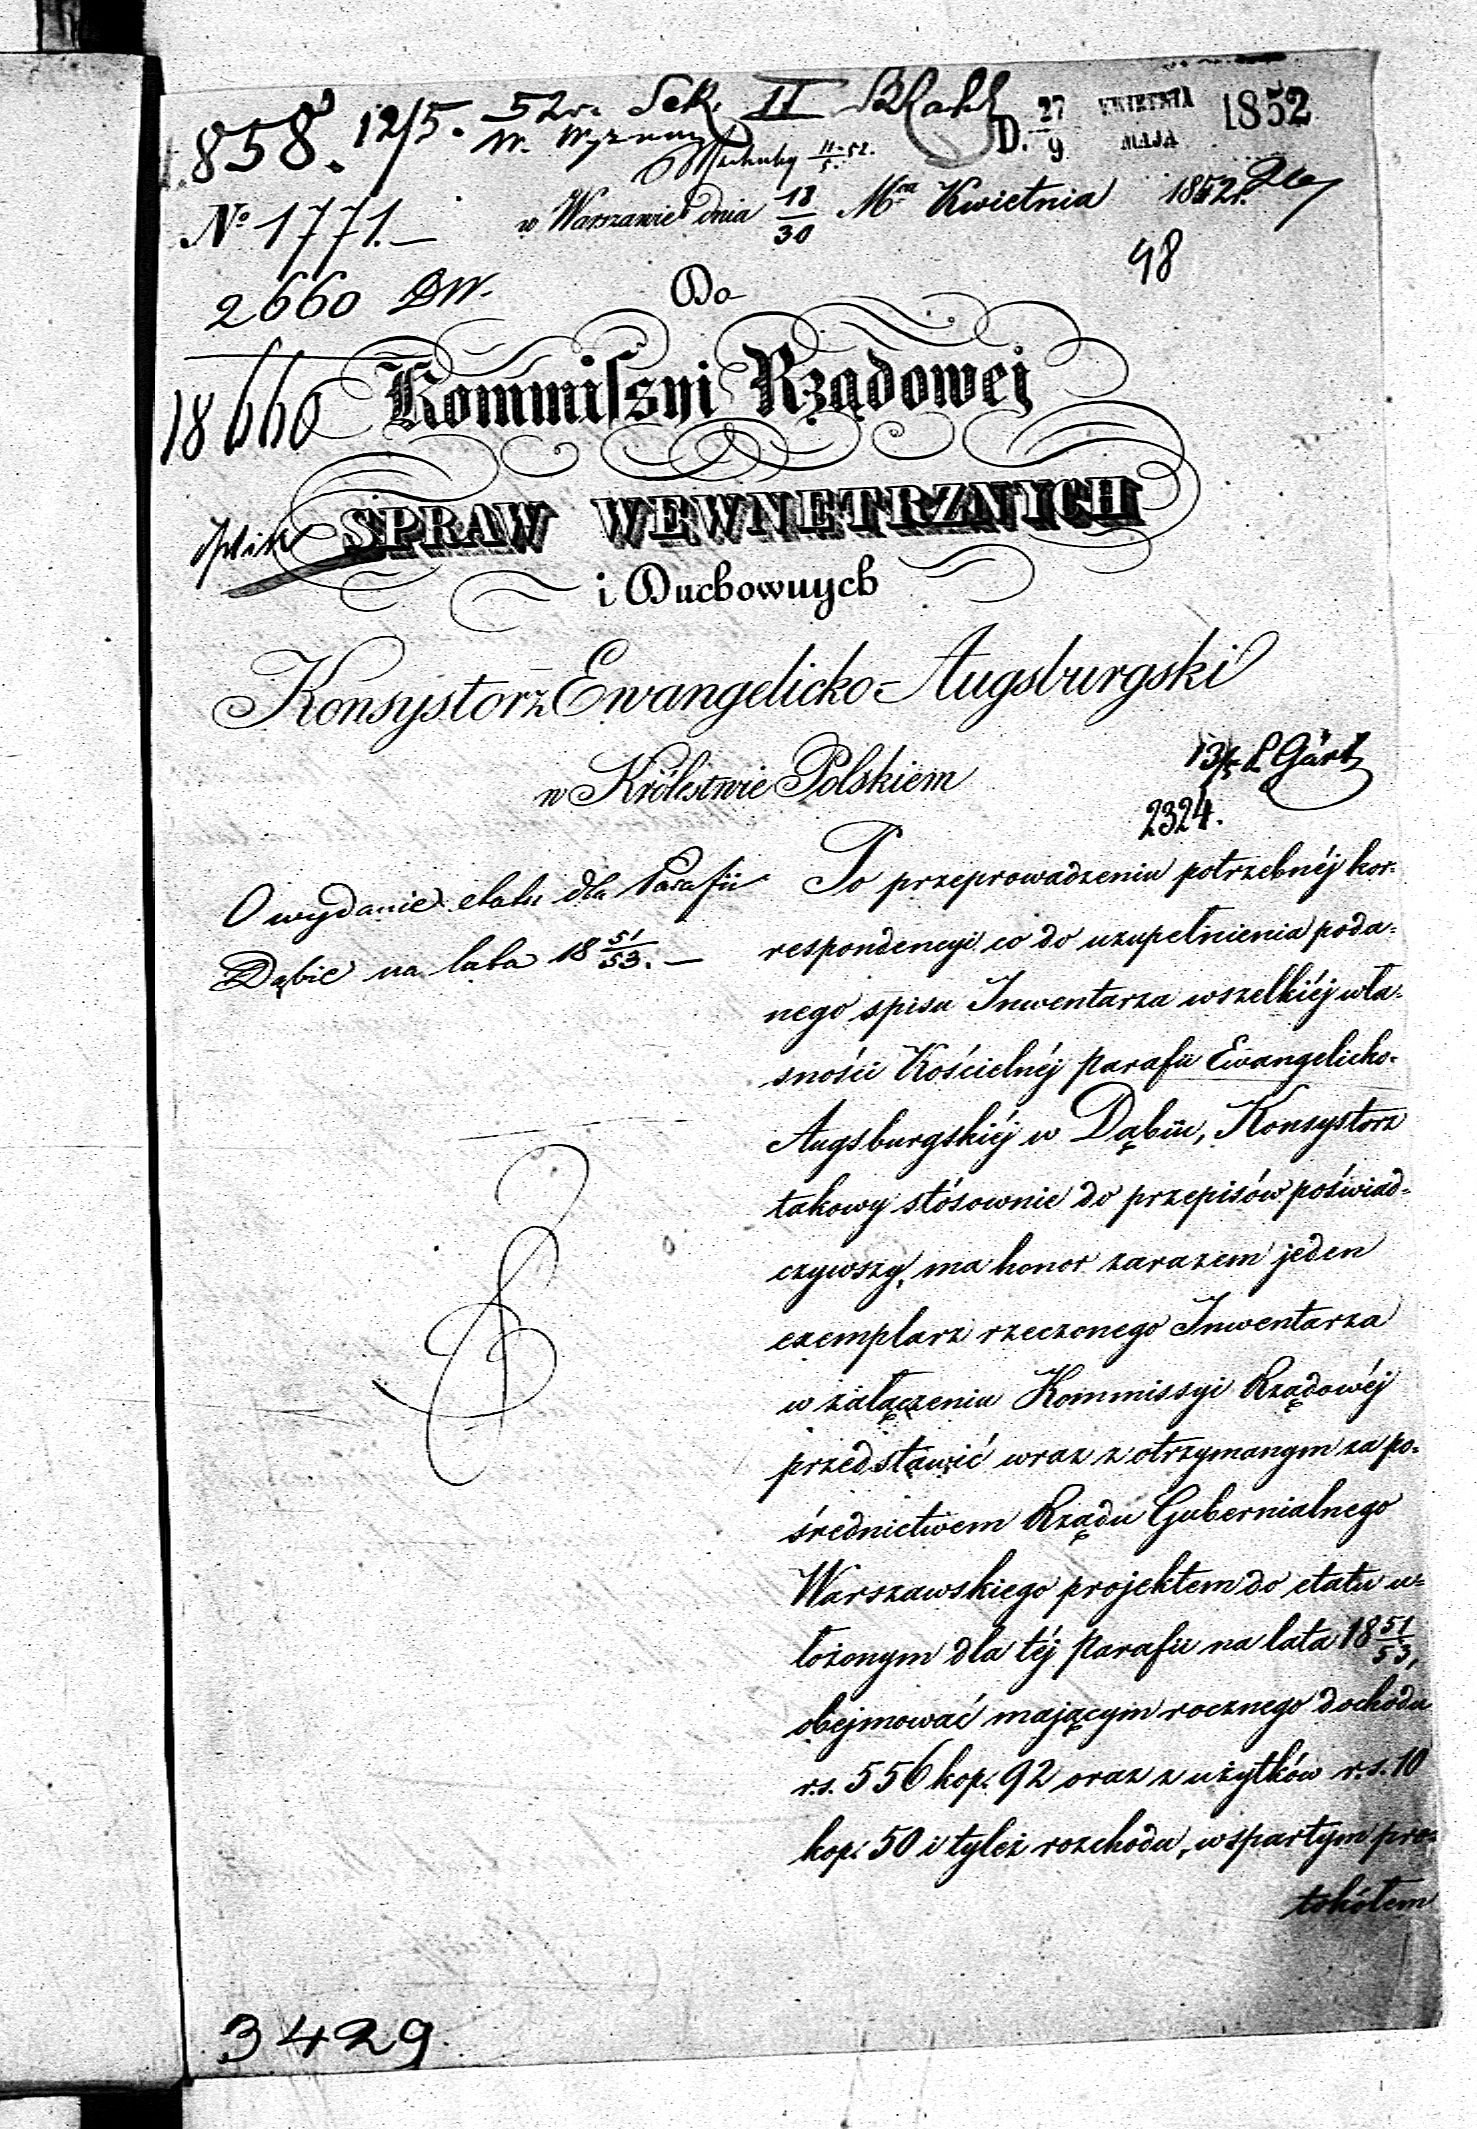 858. 12/5. 52 r. Sek. II
D. 27/9 KWIETNIA MAJA 1852
W. Wyznań
11/5 52.
№ 1771.—
w Warszawie dnia 18/30 Mca Kwietnia 1852 r.
48
2660 DW.
Do
18660
Kommissyi Rządowej
SPRAW WEWNETRZNYCH
i Duchownych
Konsystorz Ewangelicko-Augsburgski
w Królestwie Polskiem
13/5
2324.
O wydanie etatu dla Parafii
Dąbie na lata 18 51/53.—
Po przeprowadzeniu potrzebnéj kor-
respondencyi co do uzupełnienia poda-
nego spisu Inwentarza wszelkiéj wła-
sności Kościelnéj parafii Ewangelicko-
Augsburgskiéj w Dąbiu, Konsystorz
takowy stósownie do przepisów poświad-
czywszy, ma honor zarazem jeden
exemplarz rzeczonego Inwentarza
w załączeniu Kommissyi Rządowéj
przedstawić wraz z otrzymanym za po-
średnictwem Rządu Gubernialnego
Warszawskiego projektem do etatu u-
łożonym dla téj Parafii na lata 18 51/53,
obejmować mającym rocznego dochodu
r.s. 556 kop. 92 oraz z użytków r.s. 10
kop. 50 i tyleż rozchodu, wspartym pro-
tokółem
3429